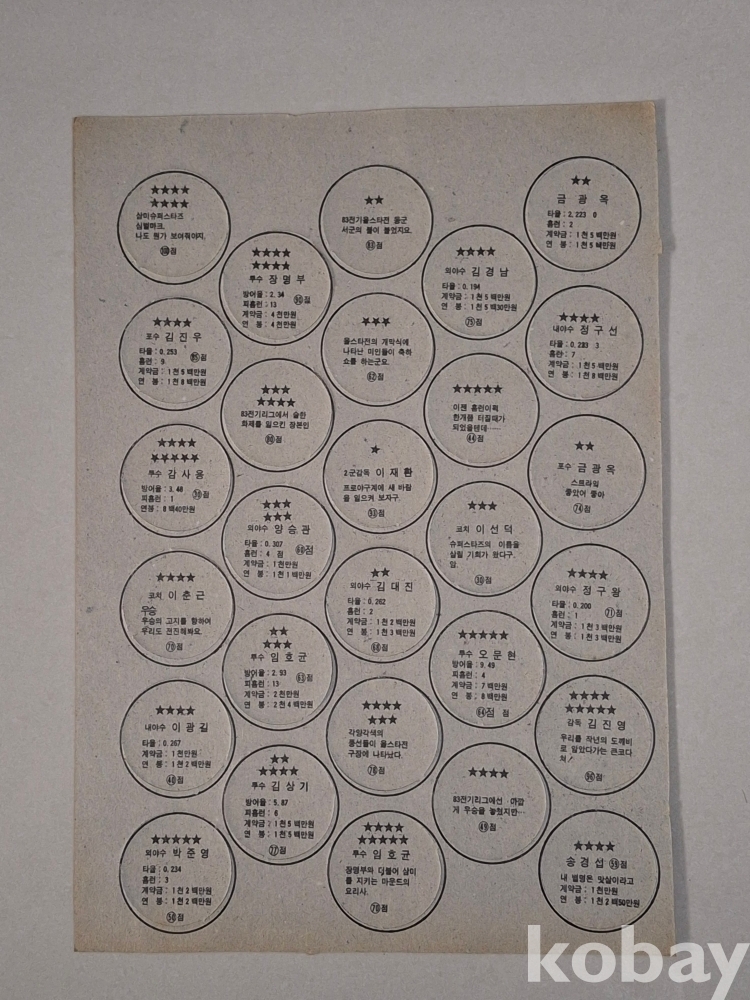 ★★★★
★★★★
삼미슈퍼스타즈
심벌마크.
나도 뭔가 보여줘야지.
점
★★★★
포수 김진우
타율 : 0.253
홈런 : 9
점
계약금 : 1천 5백만원
연 봉 : 1천 8백만원
★★★★
★★★★★
투수 감사용
방어율 : 3.48
피홈런 : 1
점
연봉 : 8백40만원
★★★★
코치 이춘근
우승
우승의 고지를 향하여
우리도 전진해봐요.
점
★★★★
내야수 이광길
타율 : 0.267
계약금 : 1천만원
연 봉 : 1천 2백만원
㊵점
★★★★★
외야수 박준영
타율 : 0.234
홈런 : 3
계약금 : 1천 2백만원
연 봉 : 1천 2백만원
㊿점
★★★★
★★★★
투수 장명부
방어율 : 2.34
피홈런 : 13
점
계약금 : 4천만원
연 봉 : 4천만원
★★★
★★★★
83전기리그에서 숱한
화제를 일으킨 장본인
점
★★★
★★★
외야수 양승관
타율 : 0.307
홈런 : 4 점
점
계약금 : 1천만원
연 봉 : 1천 1백만원
★★
★★★
투수 임호균
방어율 : 2.93
피홈런 : 13
점
계약금 : 2천만원
연 봉 : 2천 4백만원
★★
★★★★
투수 김상기
방어율 : 5.87
피홈런 : 6
계약금 : 1천 5백만원
연 봉 : 1천 5백만원
점
★★
83전기올스타전 동군
서군의 불이 붙었지요.
점
★★★
올스타전의 개막식에
나타난 미인들이 축하
쇼를 하는군요.
점
★
2군감독 이재환
프로야구계에 새 바람
을 일으켜 보자구.
점
★★
외야수 김대진
타율 : 0.262
홈런 : 2
계약금 : 1천 2백만원
연 봉 : 1천 3백만원
점
★★★★
★★★
각양각색의
풍선들이 올스타전
구장에 나타났다.
점
★★★★
★★★★★
투수 임호균
장명부와 더불어 삼미
를 지키는 마운드의
요리사.
점
★★★★
외야수 김경남
타율 : 0.194
계약금 : 1천 5백만원
연 봉 : 1천 5백30만원
점
★★★★★
이젠 홈런이꼭
한개쯤 터질때가
되었을텐데……
㊹점
★★★
코치 이선덕
슈퍼스타즈의 이름을
살릴 기회가 왔다구.
암.
㉚점
★★★★★
투수 오문현
방어율 : 9.49
피홈런 : 4
계약금 : 7백만원
연 봉 : 8백만원
점 점
★★★★
83전기리그에선 아깝
게 우승을 놓쳤지만…
㊾점
★★
금광옥
타율 : 2.223 0
홈런 : 2
계약금 : 1천 5백만원
연 봉 : 1천 5백만원
★★★★
내야수 정구선
타율 : 0.283 3
홈런 : 7
계약금 : 1천 5백만원
연 봉 : 1천 8백만원
★★
포수 금광옥
스트라익
좋았어 좋아
점
★★★★
외야수 정구왕
타율 : 0.200
홈런 : 1
점
계약금 : 1천 3백만원
연 봉 : 1천 3백만원
★★★★
★★★★★
감독 김진영
우리를 작년의 도깨비
로 알았다가는 큰코다
쳐!
점
★★★★
송경섭 점
내 별명은 맛살이라고
계약금 : 1천만원
연 봉 : 1천 2백50만원
kobay